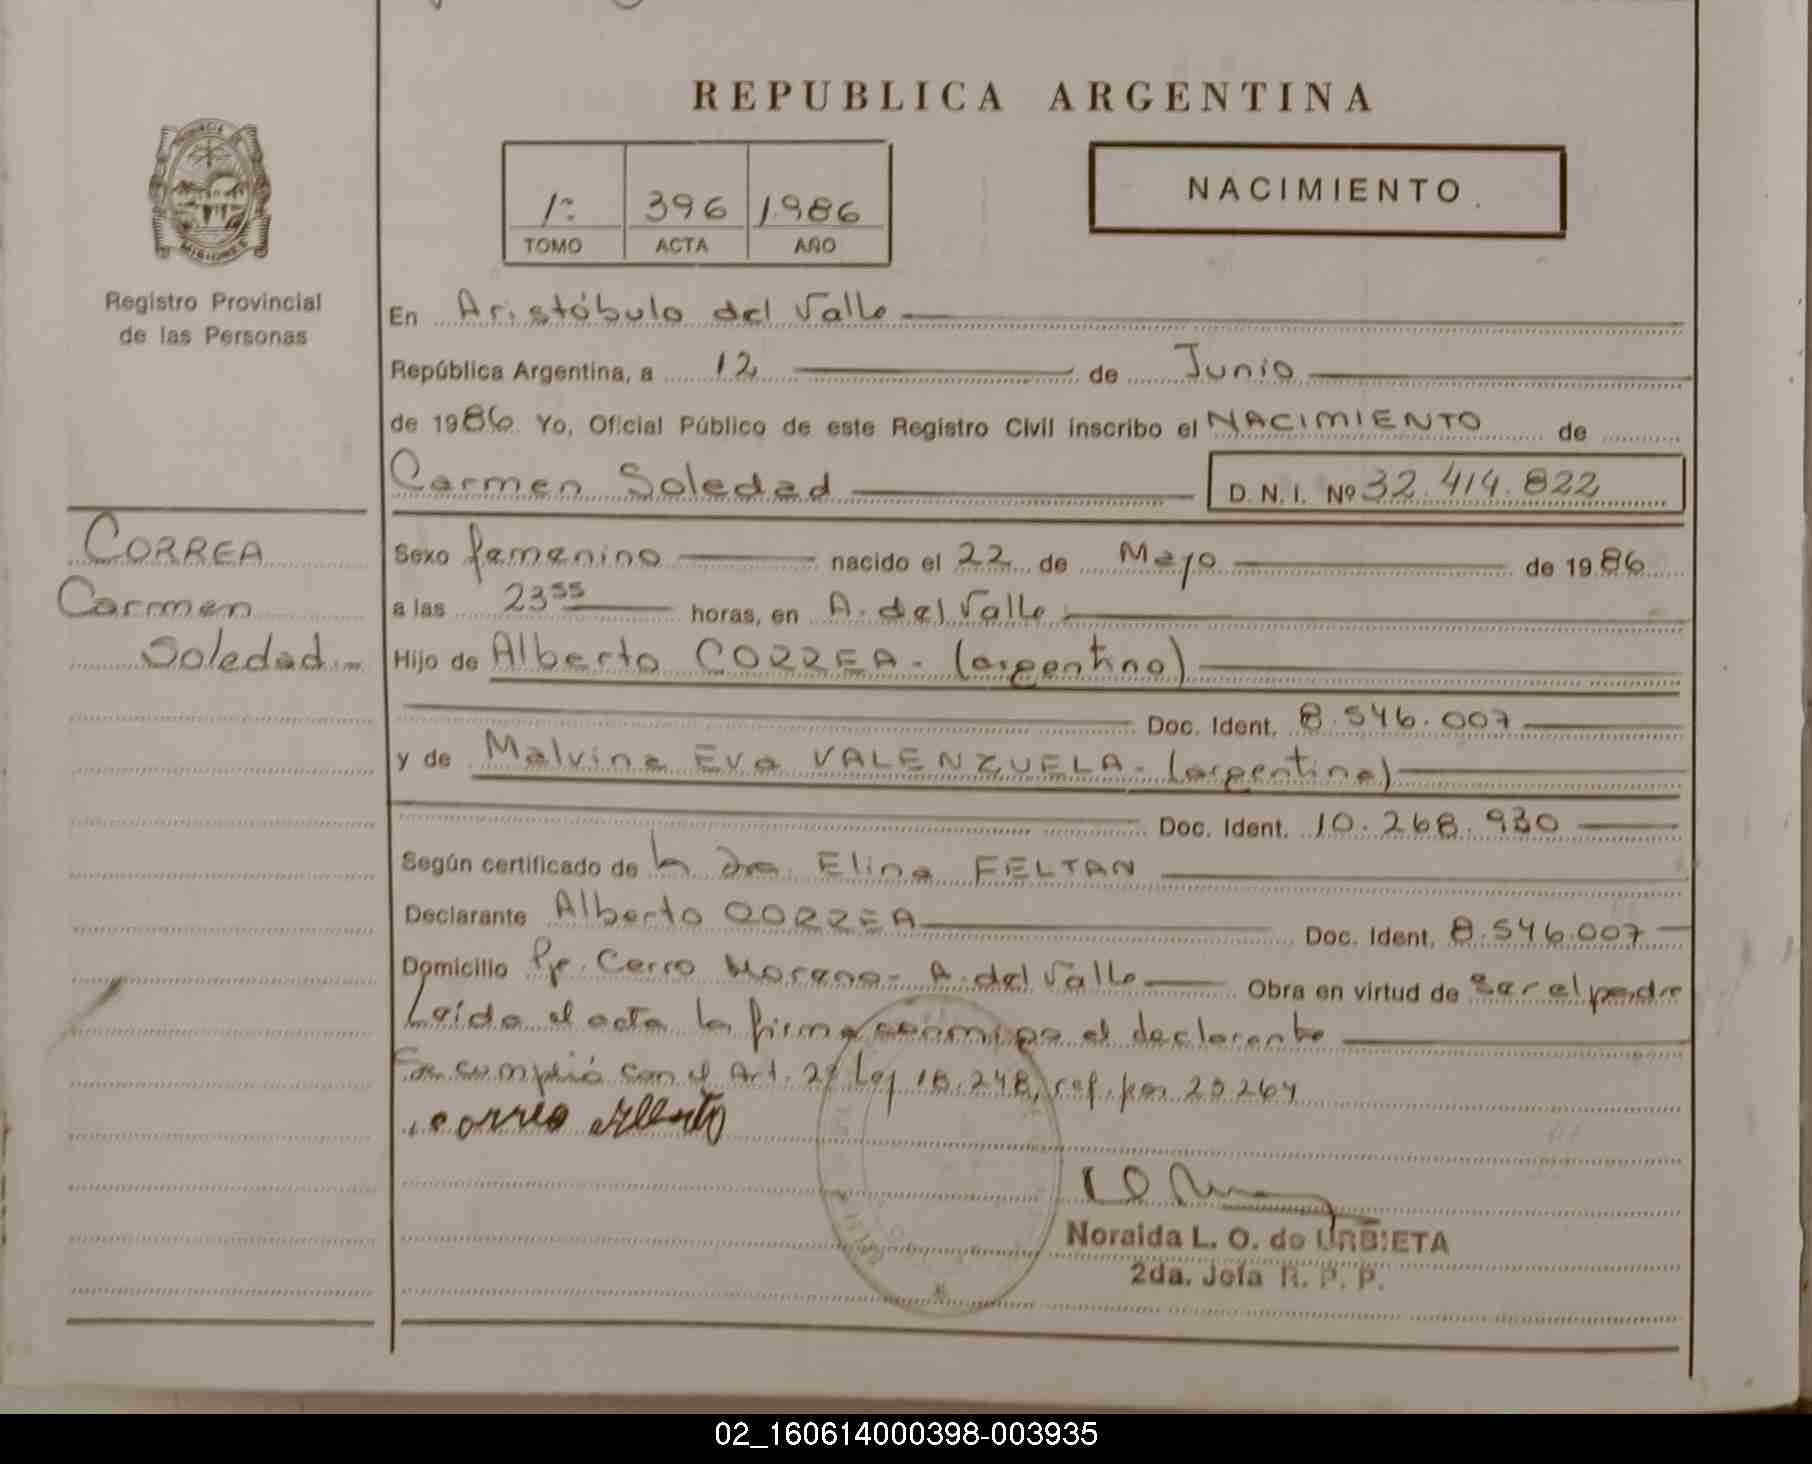 REPUBLICA ARGENTINA
MISIONES
Registro Provincial
de las Personas
1º 396 1.986
TOMO ACTA AÑO
NACIMIENTO
En Aristóbulo del Valle
República Argentina, a 12 de Junio
de 1986. Yo, Oficial Público de este Registro Civil inscribo el NACIMIENTO de
Carmen Soledad D.N.I. Nº 32.414.822
CORREA
Carmen
Soledad
Sexo femenino nacido el 22 de Mayo de 1986
a las 23 55 horas, en A. del Valle
Hijo de Alberto CORREA - (argentino)
Doc. Ident. 8.546.007
y de Malvina Eva VALENZUELA - (argentina)
Doc. Ident. 10.268.930
Según certificado de la Dra. Elina FELTAN
Declarante Alberto CORREA Doc. Ident. 8.546.007
Domicilio Pje. Cerro Moreno - A. del Valle Obra en virtud de ser el padre
Leída el acta la firma conmigo el declarante
Se cumplió con el Art. 2º Ley 18.248, ref. por 20.264
Correa Alberto
Noraida L. O. de URBIETA
2da. Jefa R. P. P.
02_160614000398-003935